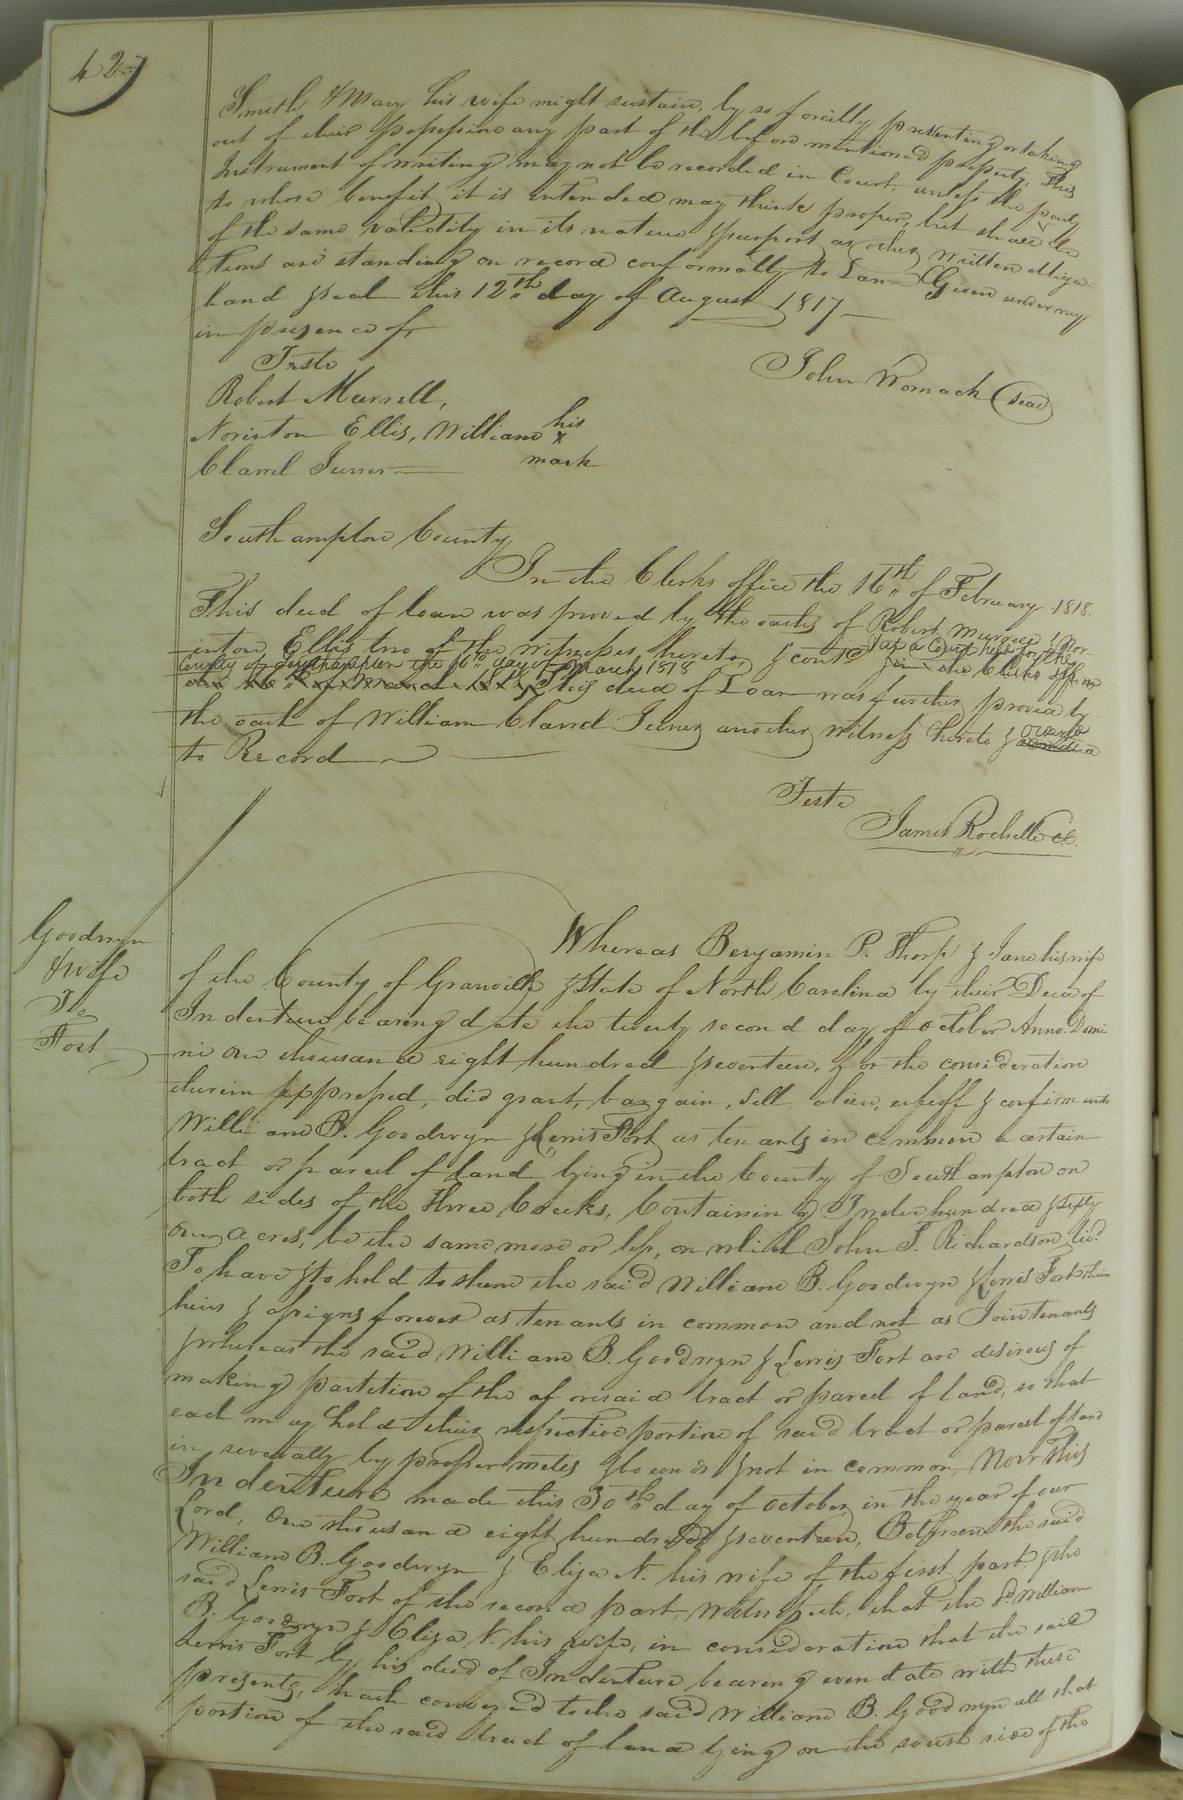 427
Smith & Mary his wife might sustain, by so forcilly presenting or taking
out of their possessions any part of the before mentioned property, This
Instrument of writing may not be recorded in Court, unless the party
to whose benefit it is intended may think proper, but shall be
of the same validity in its nature & purport as other written obliga-
tions are standing on record conformally to Law Given under my
hand & seal this 12th day of August 1817
in presence of
Teste
John Womack (seal)
Robert Murrell,
Norinton Ellis, William his
x
Cland Turner mark
Southampton County
In the Clerks office the 16th of February 1818.
This deed of loan was proved by the oaths of Robert Murrell & Nor-
inton Ellis two of the witnesses hereto, & cont'd & in the Clerks office
& at a Court held for the
County of Southampton the 16th day of March 1818
16th of March 1818 This deed of Loan was further proved by
the oath of William Cland Turner another witness hereto &
ordered
to Record
Teste
James Rochelle CC.
Goodwyn
& wife
To
Fort
Whereas Benjamin P. Thorp & Jane his wife
of the County of Granville & State of North Carolina by their Deed of
Indenture bearing date the twenty second day of October Anno. Domi
ni one thousand eight hundred & seventeen, for the consideration
therein expressed, did grant, bargain, sell, alien, enfeoff & confirm unto
William B. Goodwyn & Lewis Fort as tenants in common a certain
tract or parcel of land lying in the County of Southampton on
both sides of the three Creeks, Containing Twelve hundred & fifty
one acres, be the same more or less, on which John T. Richardson liv'd
To have & to hold to them the said William B. Goodwyn & Lewis Fort their
heirs & assigns forever as tenants in common and not as Joint tenants
& whereas the said William B. Goodwyn & Lewis Fort are desirous of
making partition of the aforesaid tract or parcel of land, so that
each may hold their respective portion of said tract or parcel of land
in severally by proper metes & bounds & not in common, Now This
Indenture made this 30th day of October in the year of our
Lord, One thousand eight hundred & seventeen, Between the said
William B. Goodwyn & Eliza N. his wife of the first part & the
said Lewis Fort of the second part, Witnesseth, that the sd William
B. Goodwyn & Eliza N. his wife, in consideration that the said
Lewis Fort by his deed of Indenture bearing even date with these
presents, hath conveyed to the said William B. Goodwyn all that
portion of the said tract of land lying on the south side of the